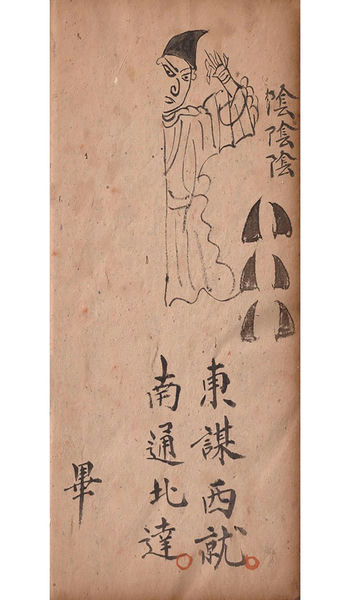 陰陰陰
東謀西就
南通北達
畢